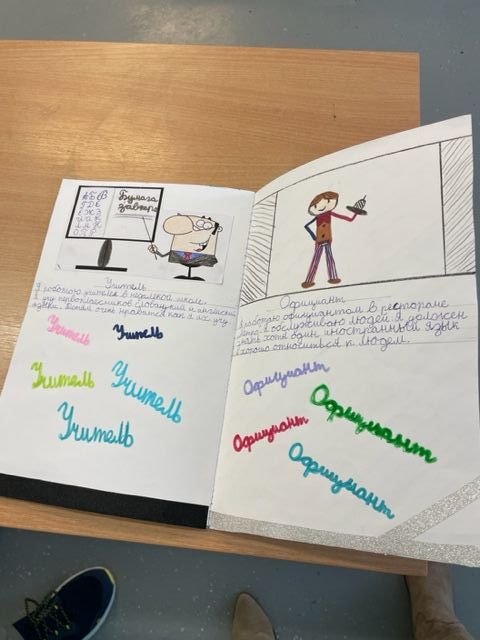 А Б В
Г Д Е
Ё Ж З
О П Р
Бумага
завтра
Учитель
Я работаю учителем в неполной школе.
Я учу первоклассников словацкий и английский
языки. Детям очень нравится как я их учу.
Учитель
Учитель
Учитель
Учитель
Учитель
Официант
Я работаю официантом в ресторане
Я обслуживаю людей. Я должен
знать хотя один иностранный язык
и хорошо относиться к людем.
Официант
Официант
Официант
Официант